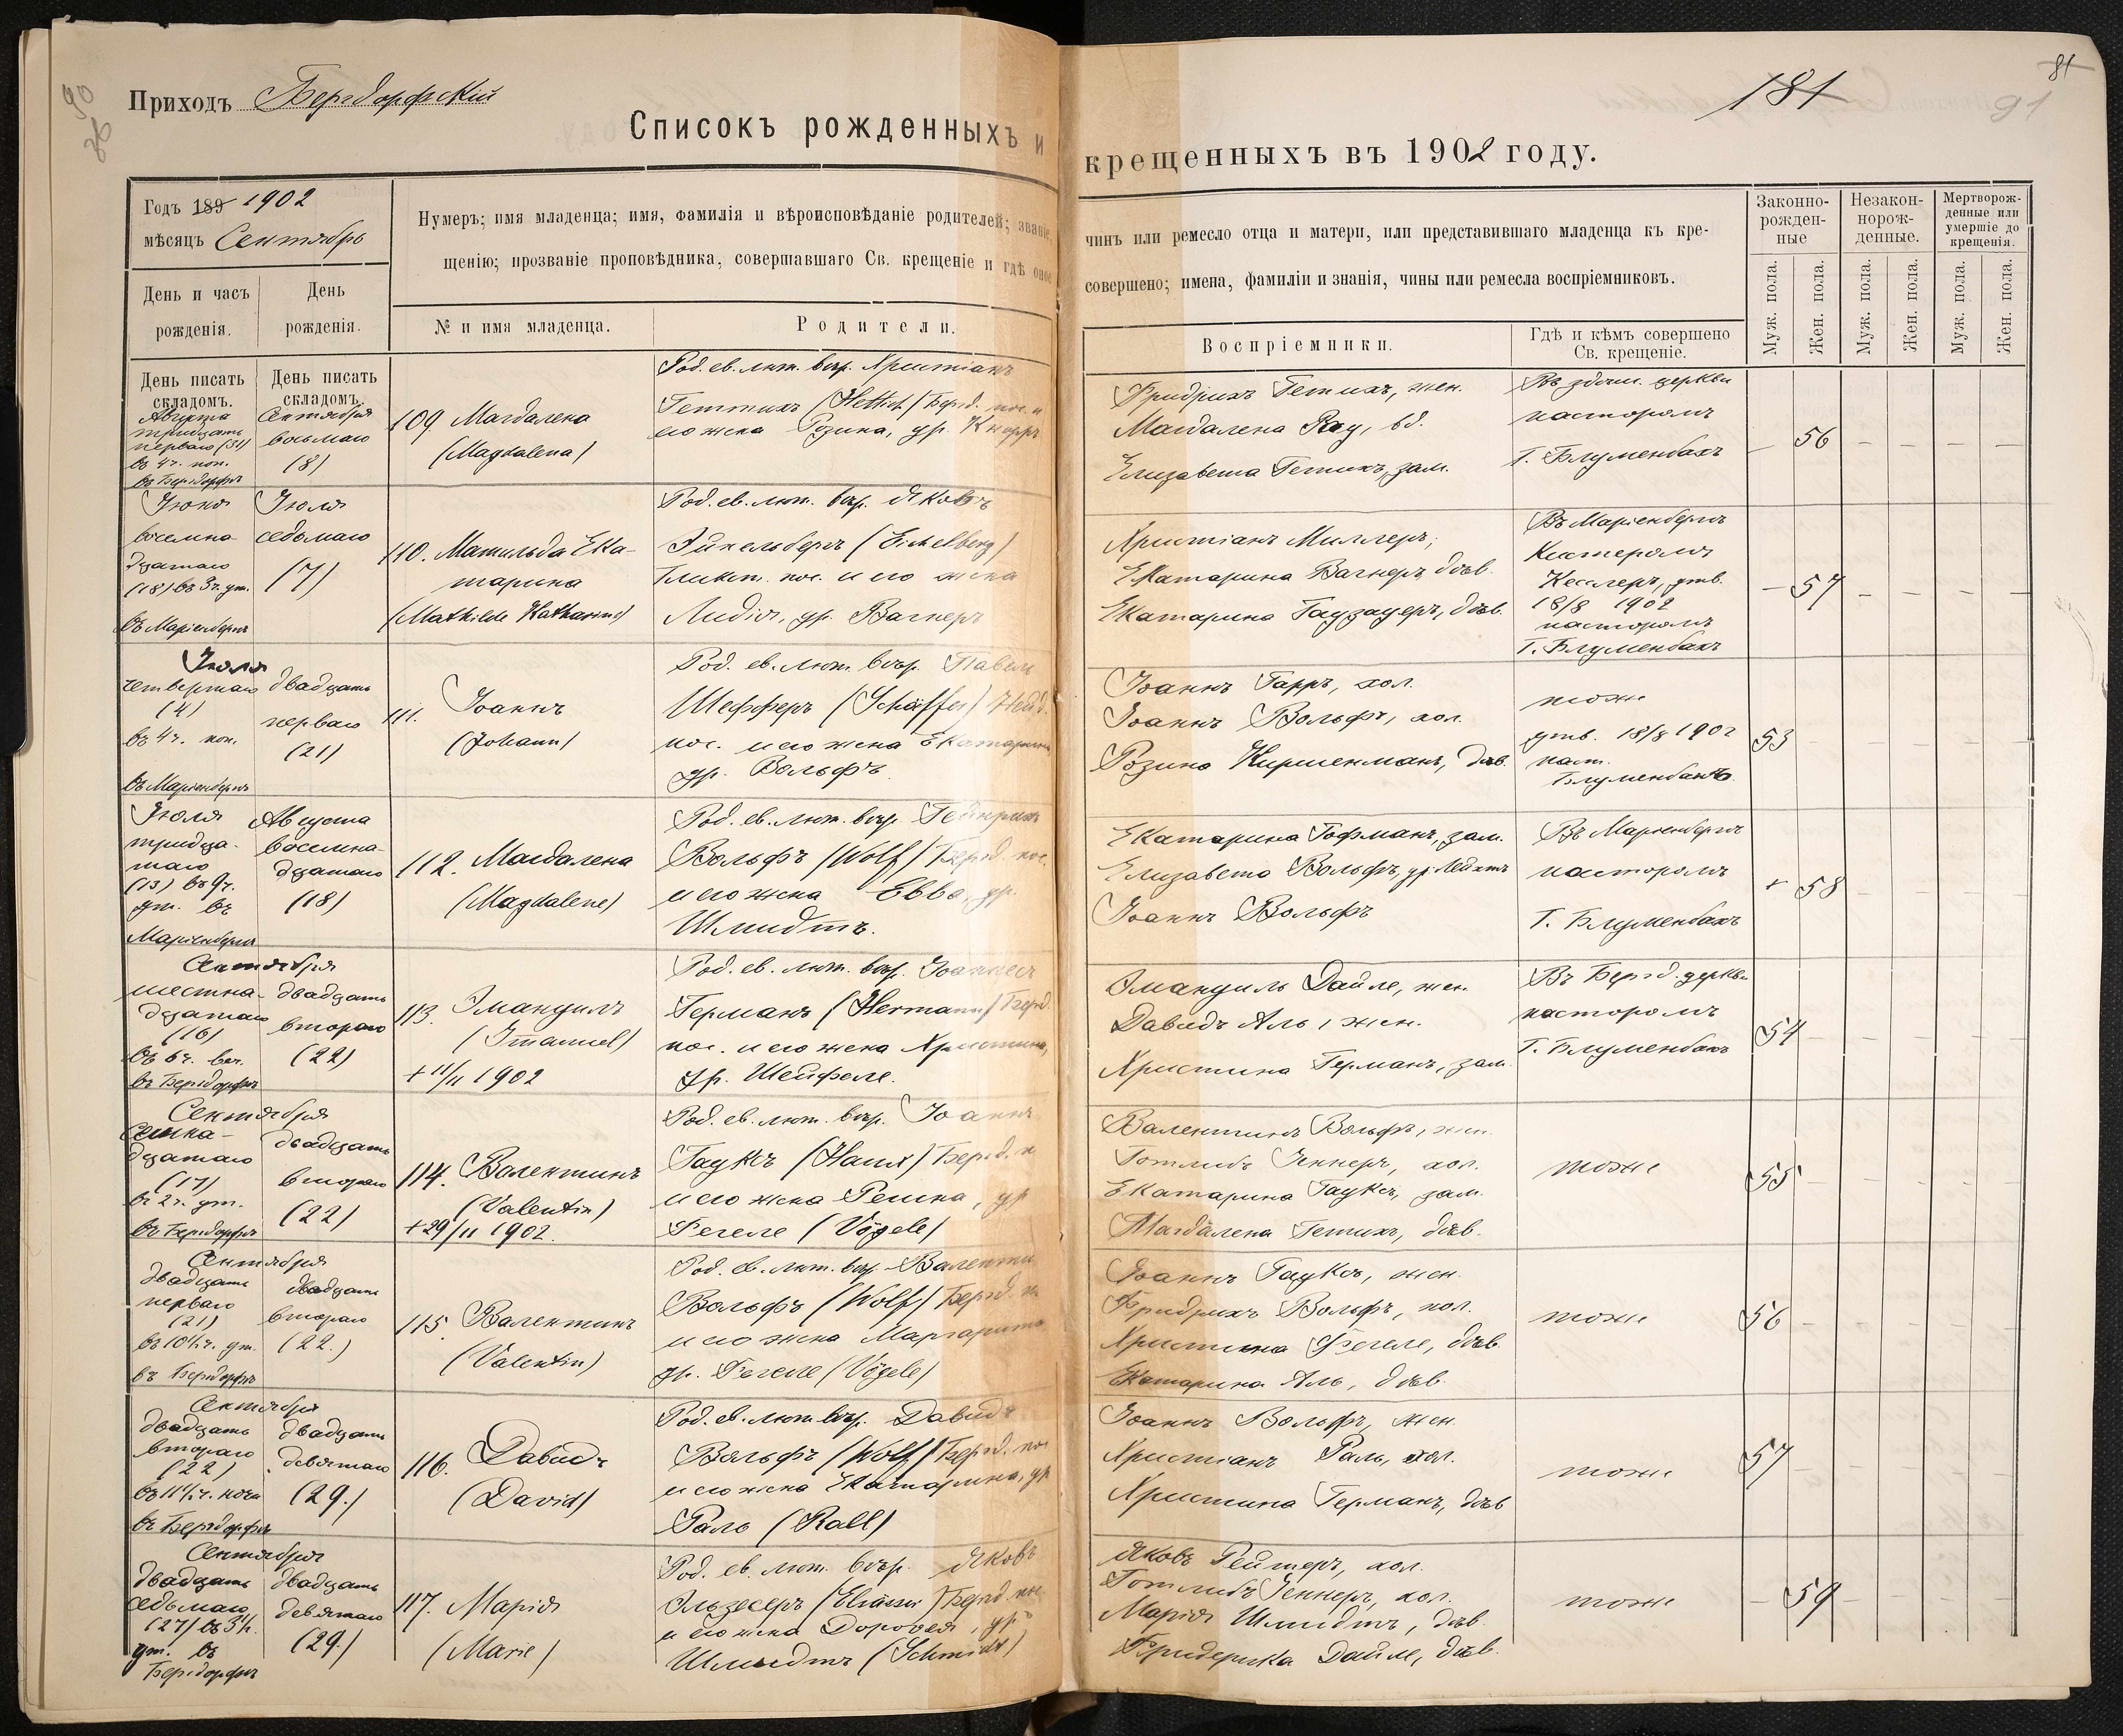 90
Приходъ Бергдорфскій
Списокъ рожденныхъ и
Годъ 189 1902
мѣсяцъ Сентябрь
Нумеръ; имя младенца; имя, фамилія и вѣроисповѣданіе родителей; званіе,
щенію; прозваніе проповѣдника, совершавшаго Св. крещеніе и гдѣ оное
День и часъ рожденія.
День рожденія.
№ и имя младенца.
Родители.
День писать складомъ.
День писать складомъ.
Августа
тридцать
перваго (31)
въ 4 ч. поп.
въ Бергдорфѣ
Сентября
восьмаго
(8)
109. Магдалена
(Magdalena)
Род. ев. лют. вѣр. Христіанъ
Геттихъ (Hettich) Бергд. пос. и
его жена Розина, ур. Кнорръ
Іюня
восемна-
дцатаго
(18) въ 3 ч. ут.
въ Маріенбергѣ
Іюля
седьмаго
(7)
110. Матильда Ека-
тарина
(Mathilde Katharina)
Род. ев. лют. вѣр. Яковъ
Эйхельбергъ (Eichelberg)
Гликст. пос. и его жена
Лидія, ур. Вагнеръ
Іюля
четвертаго
(4)
въ 4 ч. поп.
въ Маріенбергѣ
двадцать
перваго
(21)
111. Іоаннъ
(Johann)
Род. ев. лют. вѣр. Павелъ
Шефферъ (Schäffer) Нейд.
пос. и его жена Екатарина
ур. Вольфъ
Іюля
тридца-
таго
въ 9 ч.
ут. въ
Маріенбергѣ
Августа
восемна-
дцатаго
(18)
112. Магдалена
(Magdalene)
Род. ев. лют. вѣр. Гейнрихъ
Вольфъ (Wolf) Бергд. пос.
и его жена Евва, ур.
Шмидтъ.
Сентября
шестна-
дцатаго
(16)
въ 6 ч. веч.
въ Бергдорфѣ
двадцать
втораго
(22)
113. Эмануилъ
(Imanuel)
+ 11/11 1902
Род. ев. лют. вѣр. Іоаннесъ
Германъ (Hermann) Бергд.
пос. и его жена Христина,
ур. Шейфеле.
Сентября
семна-
дцатаго
(17)
въ 2 ч. ут.
въ Бергдорфѣ
двадцать
втораго
(22)
114. Валентинъ
(Valentin)
+ 29/11 1902.
Род. ев. лют. вѣр. Іоаннъ
Гауксъ (Haux) Бергд. п
и его жена Регина, ур
Фегеле (Vögele)
Сентября
двадцать
перваго
(21)
въ 10 ½ ч. ут.
въ Бергдорфѣ
двадцать
втораго
(22.)
115. Валентинъ
(Valentin)
Род. ев. лют. вѣр. Валентинъ
Вольфъ (Wolf) Бергд. п
и его жена Маргарита
ур. Фегеле (Vögele)
Сентября
двадцать
втораго
(22)
въ 11 ½ ч. ночи
въ Бергдорфѣ
двадцать
девятаго
(29.)
116. Давидъ
(David)
Род. ев. лют. вѣр. Давидъ
Вольфъ (Wolf) Бергд. пос
и его жена Екатарина, ур
Раль (Rall)
Сентября
двадцать
седьмаго
(27) въ 3 ч.
ут. въ
Бергдорфѣ
двадцать
девятаго
(29.)
117. Марія
(Marie)
Род. ев. лют. вѣр. Яковъ
Эльзесеръ (Elsässer) Бергд. пос
и его жена Доротея, ур.
Шмидтъ (Schmidt)
181
81
91
крещенныхъ въ 1902 году.
чинъ или ремесло отца и матери, или представившаго младенца къ кре-
совершено; имена, фамиліи и знанія, чины или ремесла воспріемниковъ.
Воспріемники.
Гдѣ и кѣмъ совершено Св. крещеніе.
Законно-рожден-ные
Незакон-норож-денные.
Мертворож-денные или умершіе до крещенія.
Муж. пола.
Жен. пола.
Муж. пола.
Жен. пола.
Муж. пола.
Жен. пола.
Фридрихъ Гетихъ, жен.
Магдалена Рау, вд.
Елизавета Гетихъ, зам.
Въ здѣш. церкви
пасторомъ
Г. Блуменбахъ
— 56 — — — —
Христіанъ Миллеръ,
Екатарина Вагнеръ, дѣв.
Екатарина Гаузауеръ, дѣв.
Въ Маріенбергѣ
Кистеромъ
Кесслеръ, утв.
18/8 1902
пасторомъ
Г. Блуменбахъ
— 57 — — — —
Іоаннъ Гарръ, хол.
Іоаннъ Вольфъ, хол.
Розина Киршенманъ, дѣв.
тоже
утв. 18/8 1902
паст.
Блуменбахъ.
53 — — — — —
Екатарина Гофманъ, зам.
Елизавета Вольфъ,
Іоаннъ Вольфъ
Въ Маріенбергѣ
пасторомъ
Г. Блуменбахъ
58 — — — —
Эмануиль Дайле, жен.
Давидъ Аль, жен.
Христина Германъ, зам.
Въ Бергд. церкви
пасторомъ
Г. Блуменбахъ
54 — — — — —
Валентинъ Вольфъ, жен.
Готлибъ Геннеръ, хол.
Екатарина Гауксъ, зам.
Магдалена Гетихъ, дѣв.
тоже
55 — — — — —
Іоаннъ Гауксъ, жен.
Фридрихъ Вольфъ, хол.
Христина Фегеле, дѣв.
Екатарина Аль, дѣв.
тоже
56 — — — — —
Іоаннъ Вольфъ, жен.
Христіанъ Раль, хол.
Христина Германъ, дѣв
тоже
57 — — — — —
Яковъ Рейтеръ, хол.
Готлибъ Геннеръ, хол.
Марія Шмидтъ, дѣв.
Фридерика Дайле, дѣв.
тоже
— 59 — — — —